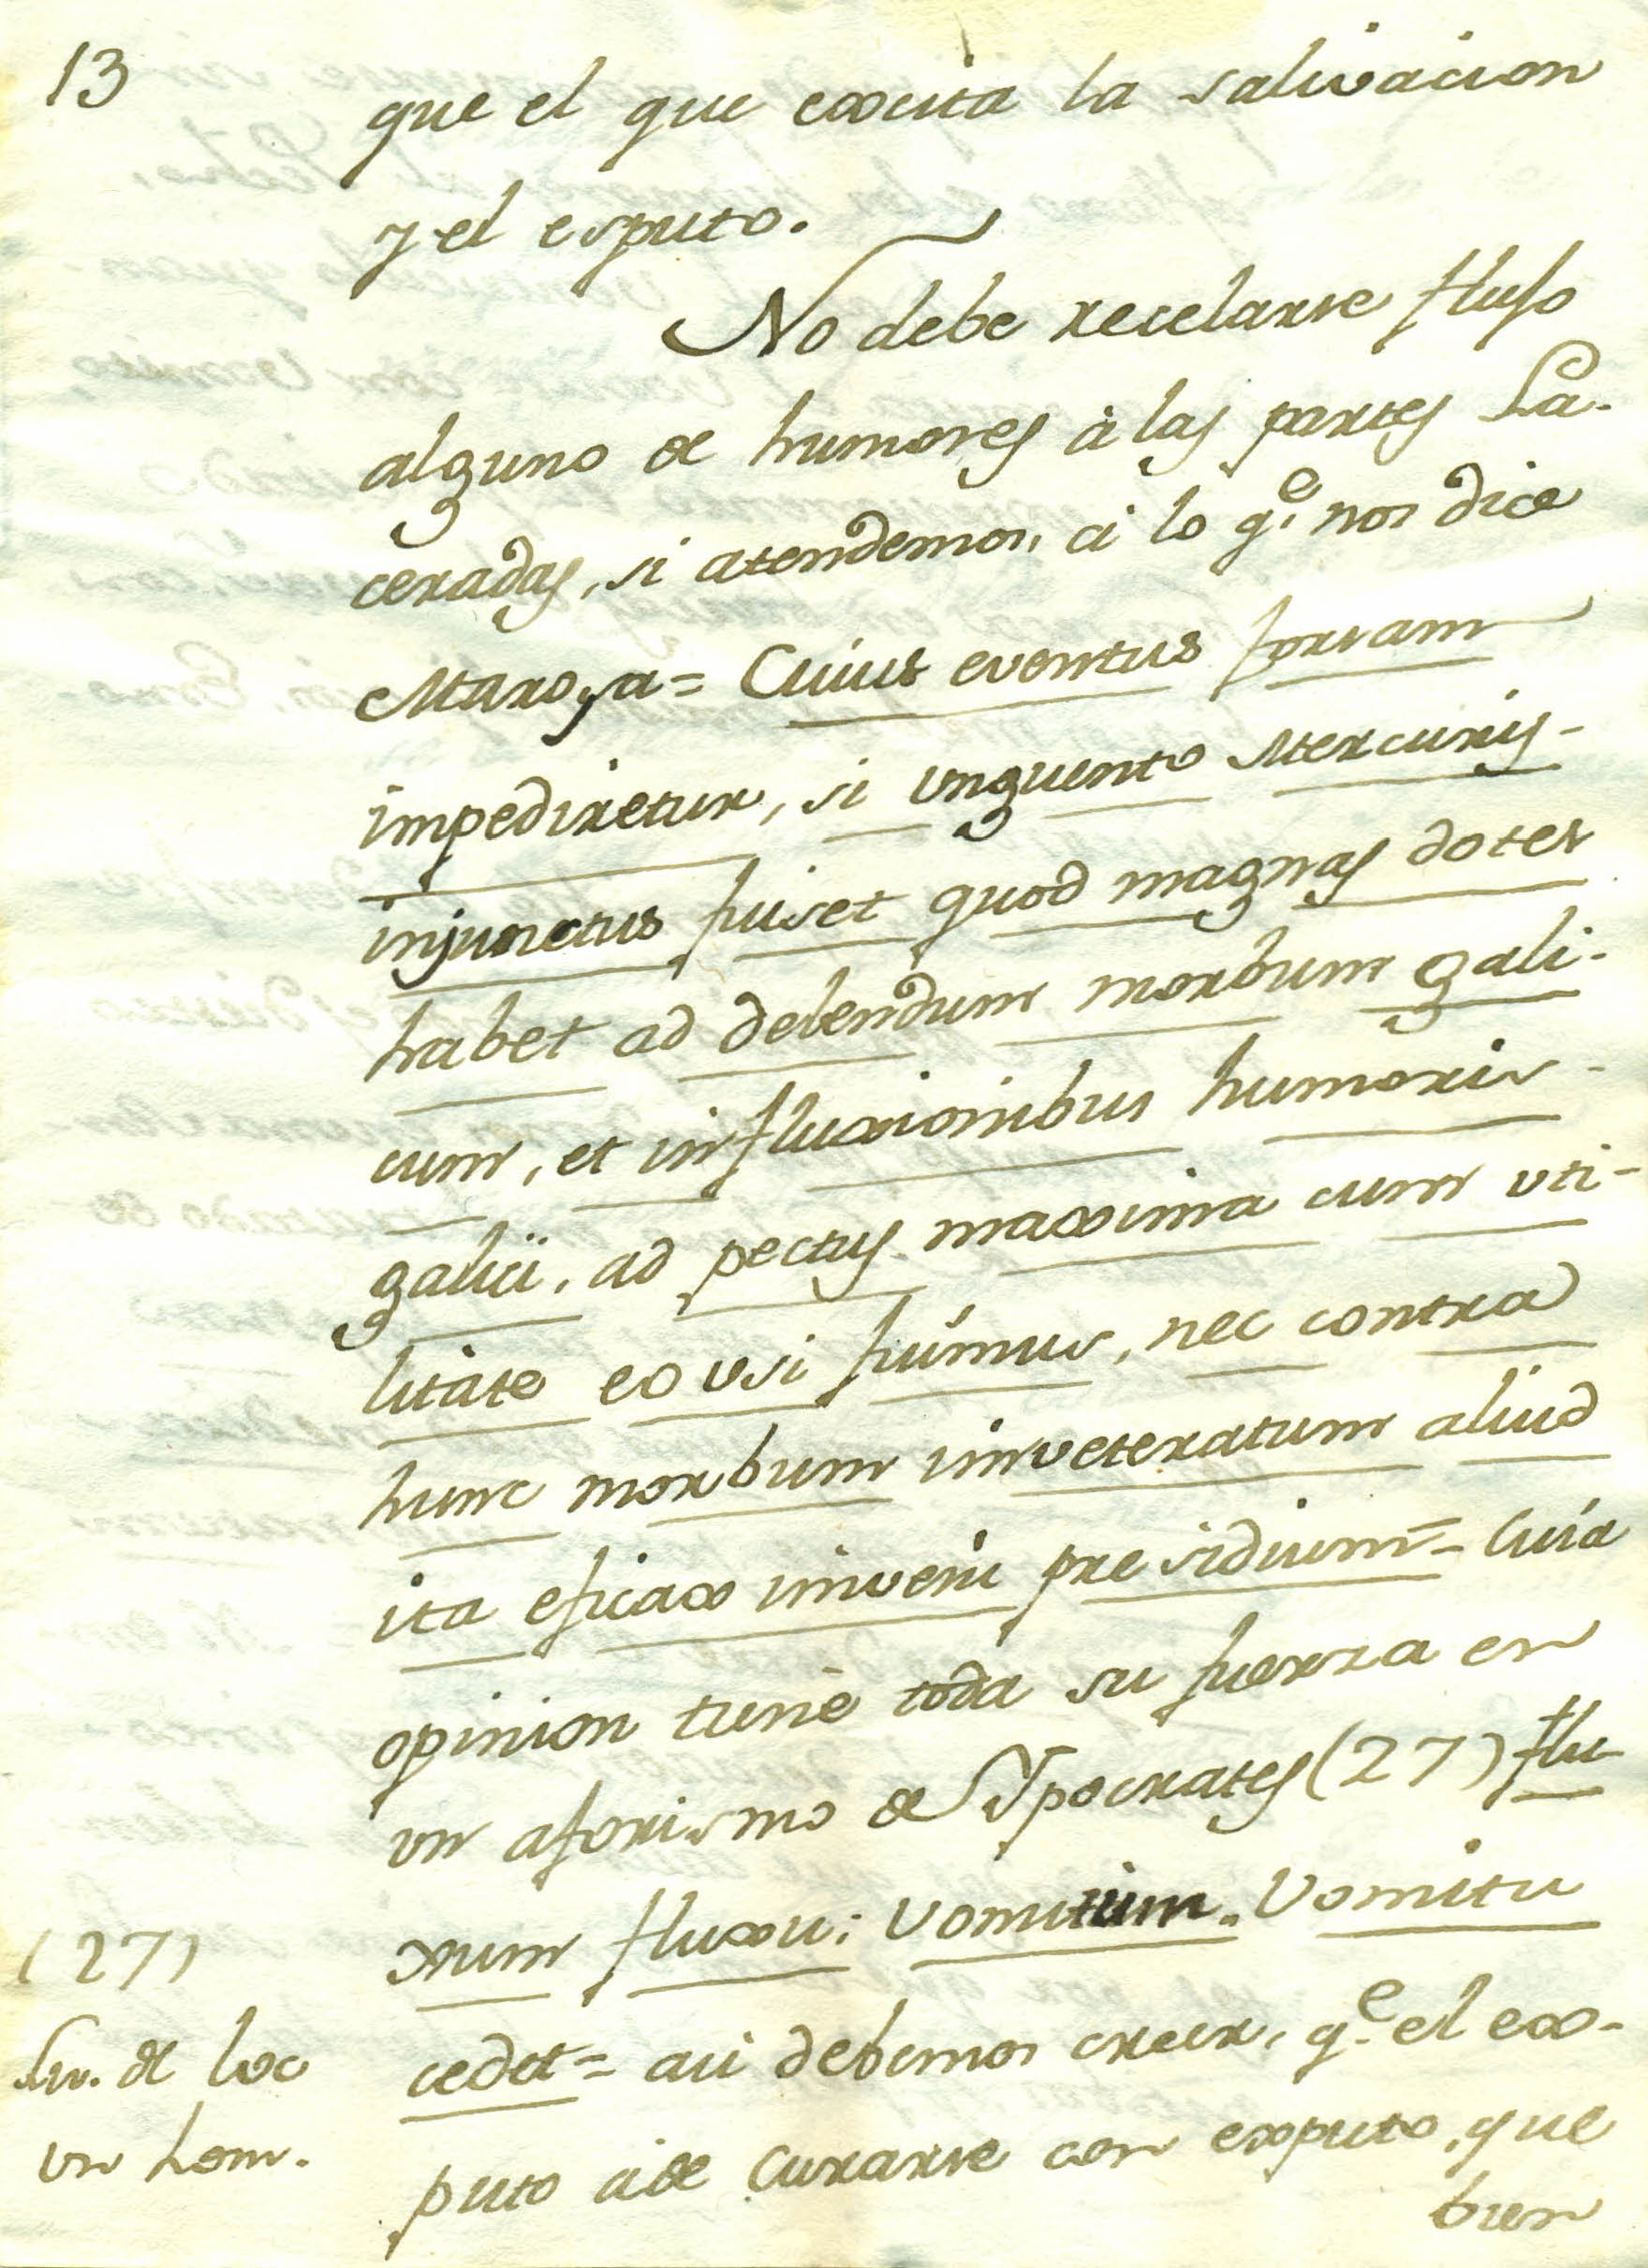 13
que el que excita la salivacion
y el esputo.
No debe recelarse flujo
alguno de humores à las partes La-
ceradas, si atendemos, à lo q.e nos dice
Maroja = Cuius eventus forsam
impediretur, si unguento Mercurij-
injunctus fuiset quod magnas dotes
habet ad delendum morbum gali-
cum, et in fluxionibus humoris-
galici, ad pectus maxima cum uti-
litate eo usi fuimus, nec contra
hunc morbum inveteratum aliud
ita eficax inveni presidium = Cuia
opinion tiene toda su fuerza en
un aforismo de Ypocrates (27) flu-
xum fluxu: Vomitum. Vomitu
cedet = asi debemos creer, q.e el ex-
puto à de Curarse con exputo, que
bien
(27)
Liv. de loc
in hom.